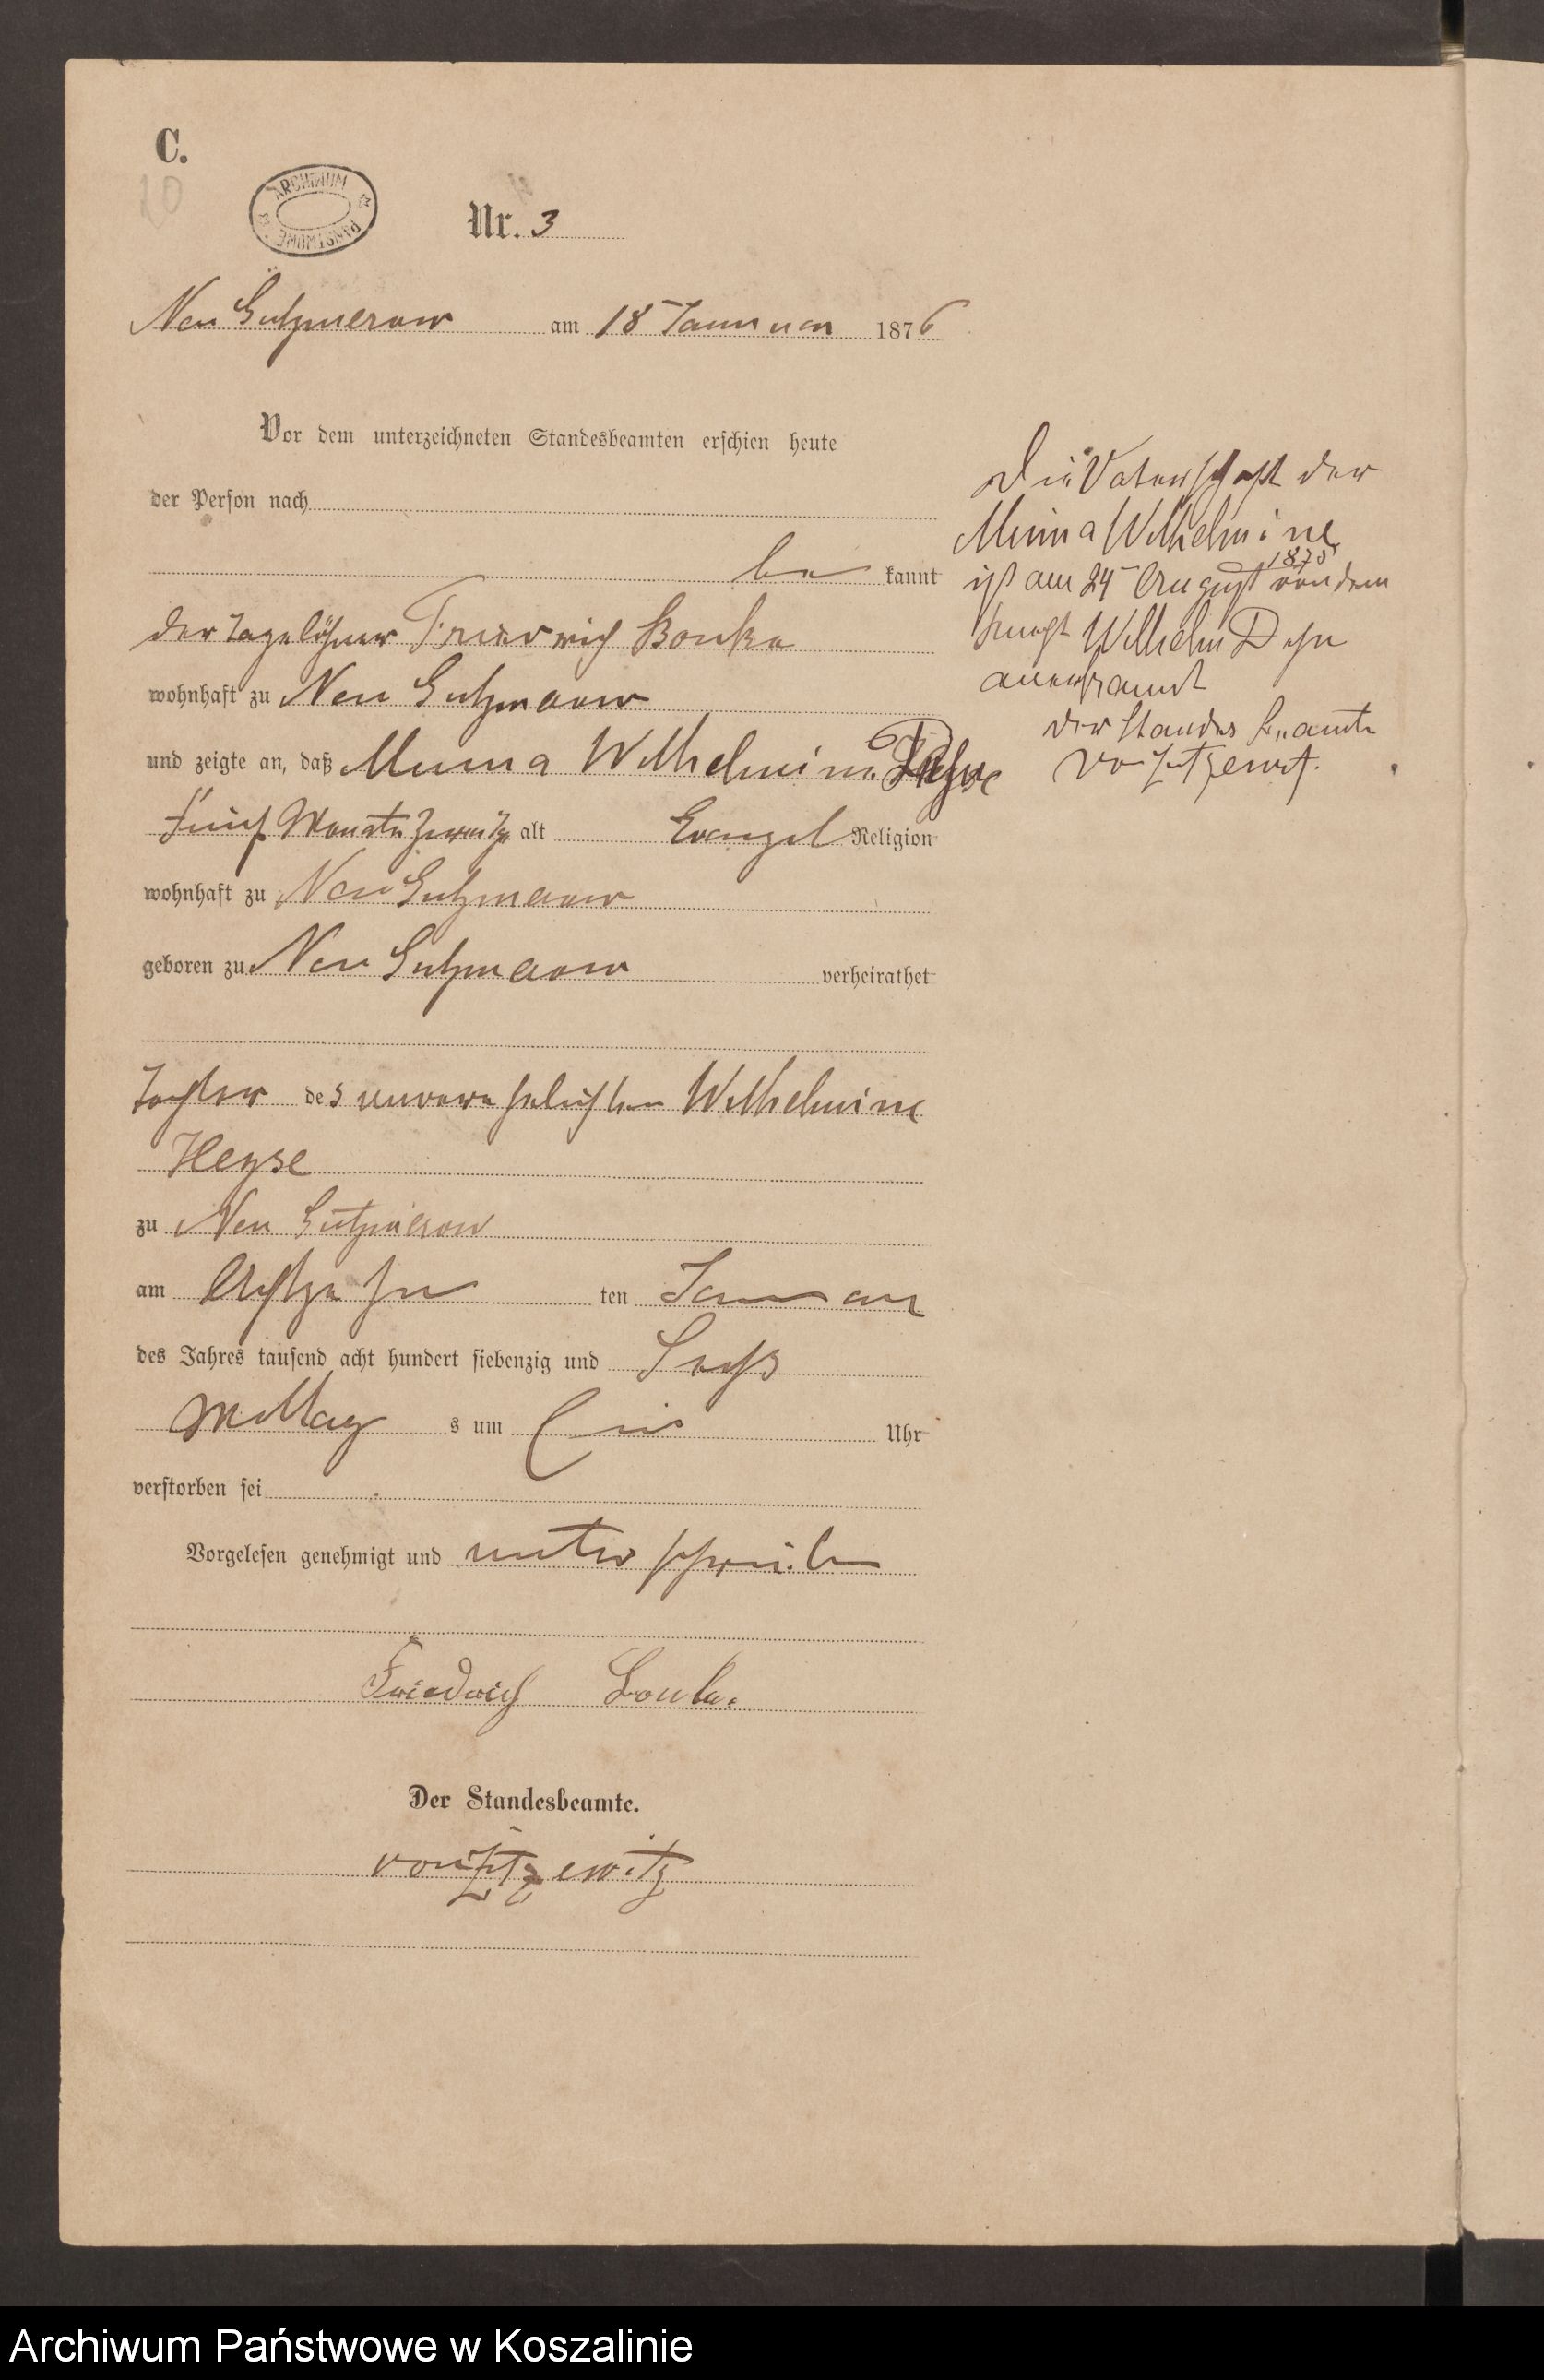 C.
20
ARCHIWUM PAŃSTWOWE
Nr. 3
Neu Gutzmerow am 18 Januar 1876
Vor dem unterzeichneten Standesbeamten erschien heute
der Person nach
be kannt
der Tagelöhner Friedrich Bonke
wohnhaft zu Neu Gutzmerow
und zeigte an, daß Minna Wilhelmine
Fünf Monate alt Evangel Religion
wohnhaft zu Neu Gutzmerow
geboren zu Neu Gutzmerow verheirathet
Tochter des unverehelichten Wilhelmine
Heyse
zu Neu Gutzmerow
am Achtzehn ten Januar
des Jahres tausend acht hundert siebenzig und Sechs
Mittag s um Eins Uhr
verstorben sei
Vorgelesen genehmigt und unterschrieben
Friedrich Bonke.
Der Standesbeamte.
von Zitzewitz
Die Vaterschaft der
Minna Wilhelmine
ist am 24 August 1875 von dem
Knecht Wilhelm Dehn
anerkannt
der Standes Beamte
v Zitzewitz.
Archiwum Państwowe w Koszalinie